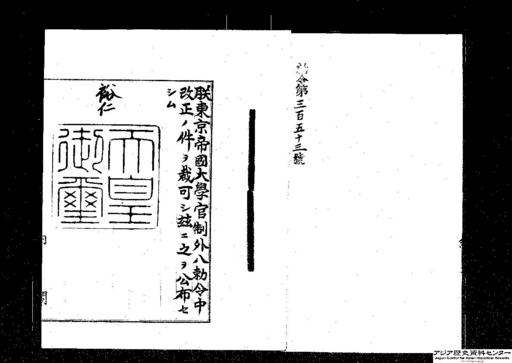 勅令第三百五十三號
朕東京帝國大學官制外八勅令中
改正ノ件ヲ裁可シ茲ニ之ヲ公布セ
シム
裕仁
天皇
御璽
内閣
アジア歴史資料センター
Japan Center for Asian Historical Records